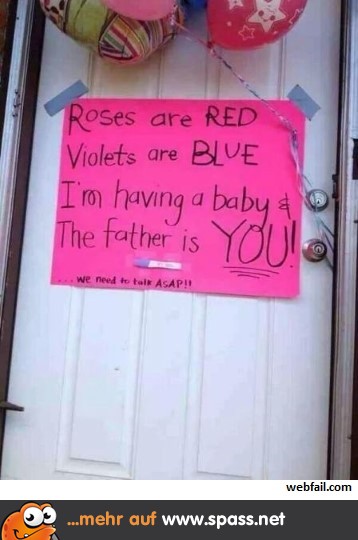 Roses are RED
Violets are BLUE
I'm having a baby &
The father is YOU!
...we need to talk ASAP!!
webfail.com
...mehr auf www.spass.net